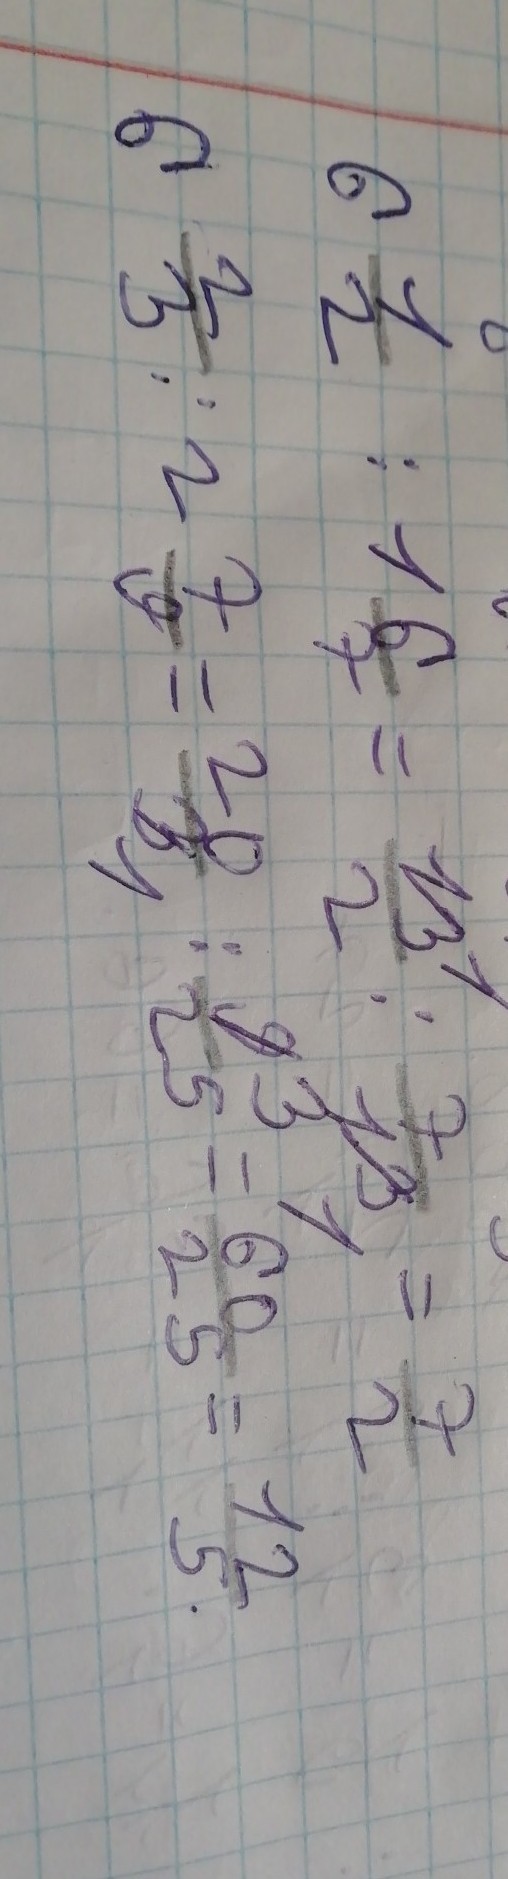 6 1/2 : 1 6/7 = 13 1/2 : 7/13 1 = 7/2
6 2/3 : 2 7/9 = 20/3 1 : 9 3/25 = 60/25 = 12/5.